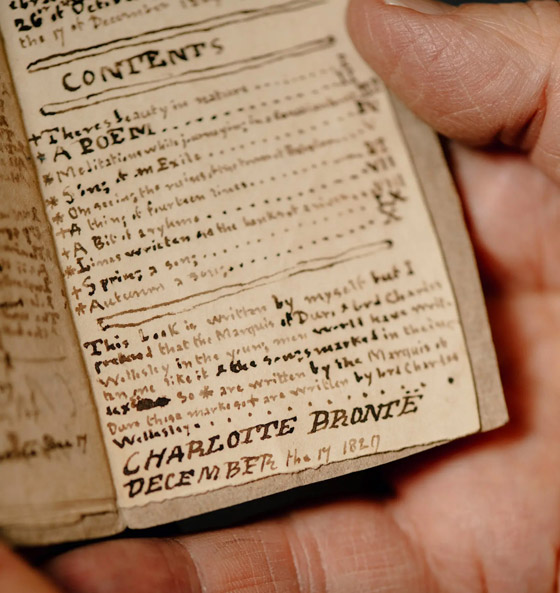 26 of October
the 17 of December
CONTENTS
+ Theres beauty in nature
* A POEM
* Meditations while journeying in a
* Song of an Exile
* On seeing the ruins of the tower of
+ A thing of fourteen lines
+ A Bit of a rhyme
* Lines written on the bank of a river
+ Spring a song
* Autumn a song
This book is written by myself but I
pretend that the Marquis of Duro & lord Charles
Wellesley in the young men world have writ-
ten one like it & the songs marked in the in-
dex so * are written by the Marquis of
Duro those marked so + are written by lord Charles
Wellesley
CHARLOTTE BRONTË
DECEMBER the 17 1829